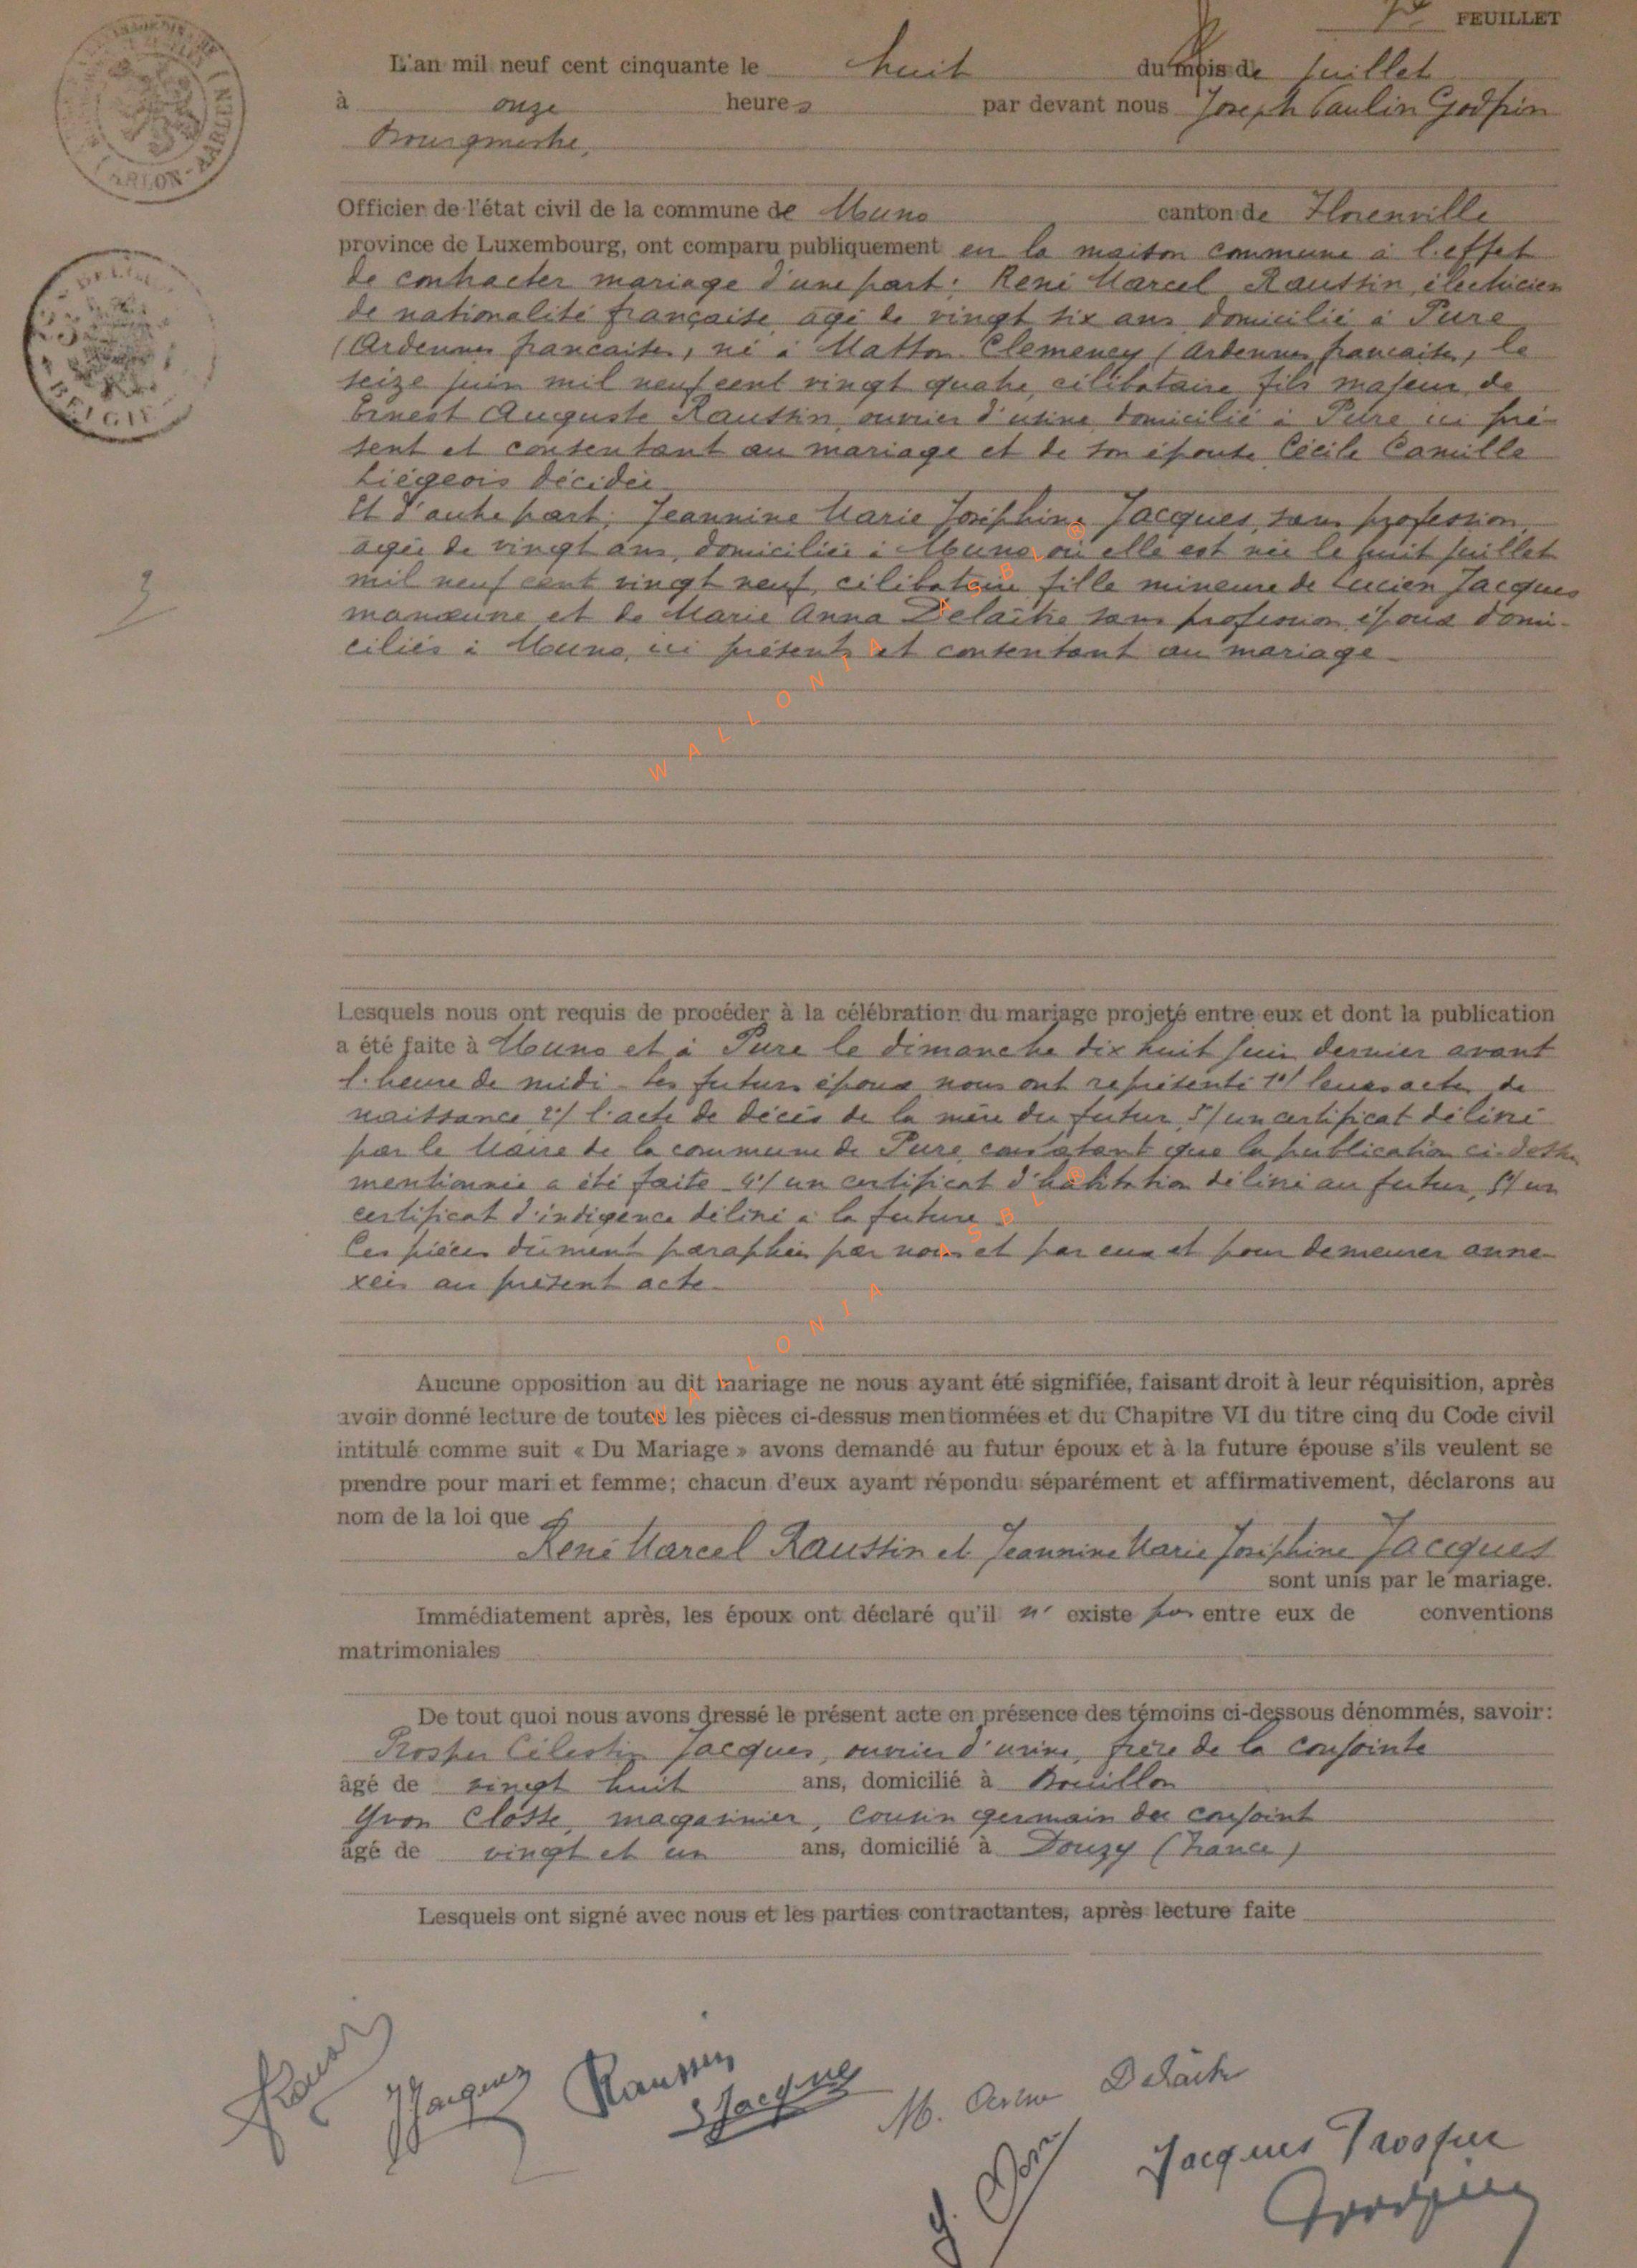 FEUILLET
L'an mil neuf cent cinquante le huit du mois de juillet
à onze heures par devant nous Joseph Paulin Godfrin
Bourgmestre,
Officier de l'état civil de la commune de Muno canton de Florenville
province de Luxembourg, ont comparu publiquement en la maison commune à l'effet
de contracter mariage d'une part: René Marcel Raussin, électricien
de nationalité française, agé de vingt six ans, domicilié à Pure
(Ardennes françaises, né à Matton Clemency (Ardennes françaises, le
seize juin mil neuf cent vingt quatre, célibataire fils majeur de
Ernest Auguste Raussin, ouvrier d'usine domicilié à Pure ici pré-
sent et consentant au mariage et de son épouse Cécile Camille
Liégeois décédée
Et d'autre part; Jeannine Marie Joséphine Jacques, sans profession,
agée de vingt ans, domiciliée à Muno où elle est née le huit juillet
mil neuf cent vingt neuf, célibataire fille mineure de Lucien Jacques
manœuvre et de Marie Anna Delaître sans profession époux domi-
ciliés à Muno, ici présents et consentant au mariage
WALLONIA ASBL ®
Lesquels nous ont requis de procéder à la célébration du mariage projeté entre eux et dont la publication
a été faite à Muno et à Pure le dimanche dix huit juin dernier avant
l'heure de midi - les futurs époux nous ont représenté 1°/ leurs actes de
naissance 2°/ l'acte de décès de la mère du futur, 3°/ un certificat délivré
par le Maire de la commune de Pure constatant que la publication ci-dessus
mentionnée a été faite 4°/ un certificat d'habitation délivré au futur, 5°/ un
certificat d'indigence délivré à la future.
Ces pièces dûment paraphées par nous et par eux et pour demeurer anne-
xées au présent acte.
WALLONIA ASBL ®
Aucune opposition au dit mariage ne nous ayant été signifiée, faisant droit à leur réquisition, après
avoir donné lecture de toutes les pièces ci-dessus mentionnées et du Chapitre VI du titre cinq du Code civil
intitulé comme suit « Du Mariage » avons demandé au futur époux et à la future épouse s'ils veulent se
prendre pour mari et femme; chacun d'eux ayant répondu séparément et affirmativement, déclarons au
nom de la loi que
René Marcel Raussin et Jeannine Marie Joséphine Jacques
sont unis par le mariage.
Immédiatement après, les époux ont déclaré qu'il n' existe pas entre eux de conventions
matrimoniales
De tout quoi nous avons dressé le présent acte en présence des témoins ci-dessous dénommés, savoir:
Prosper Célestin Jacques, ouvrier d'usine, frère de la conjointe
âgé de vingt huit ans, domicilié à Bouillon
Yvon Closse, magasinier, cousin germain du conjoint
âgé de vingt et un ans, domicilié à Douzy (France)
Lesquels ont signé avec nous et les parties contractantes, après lecture faite
JJacques Raussin
Jacques
M. Anna Delaître
Jacques Prosper
Godfrin